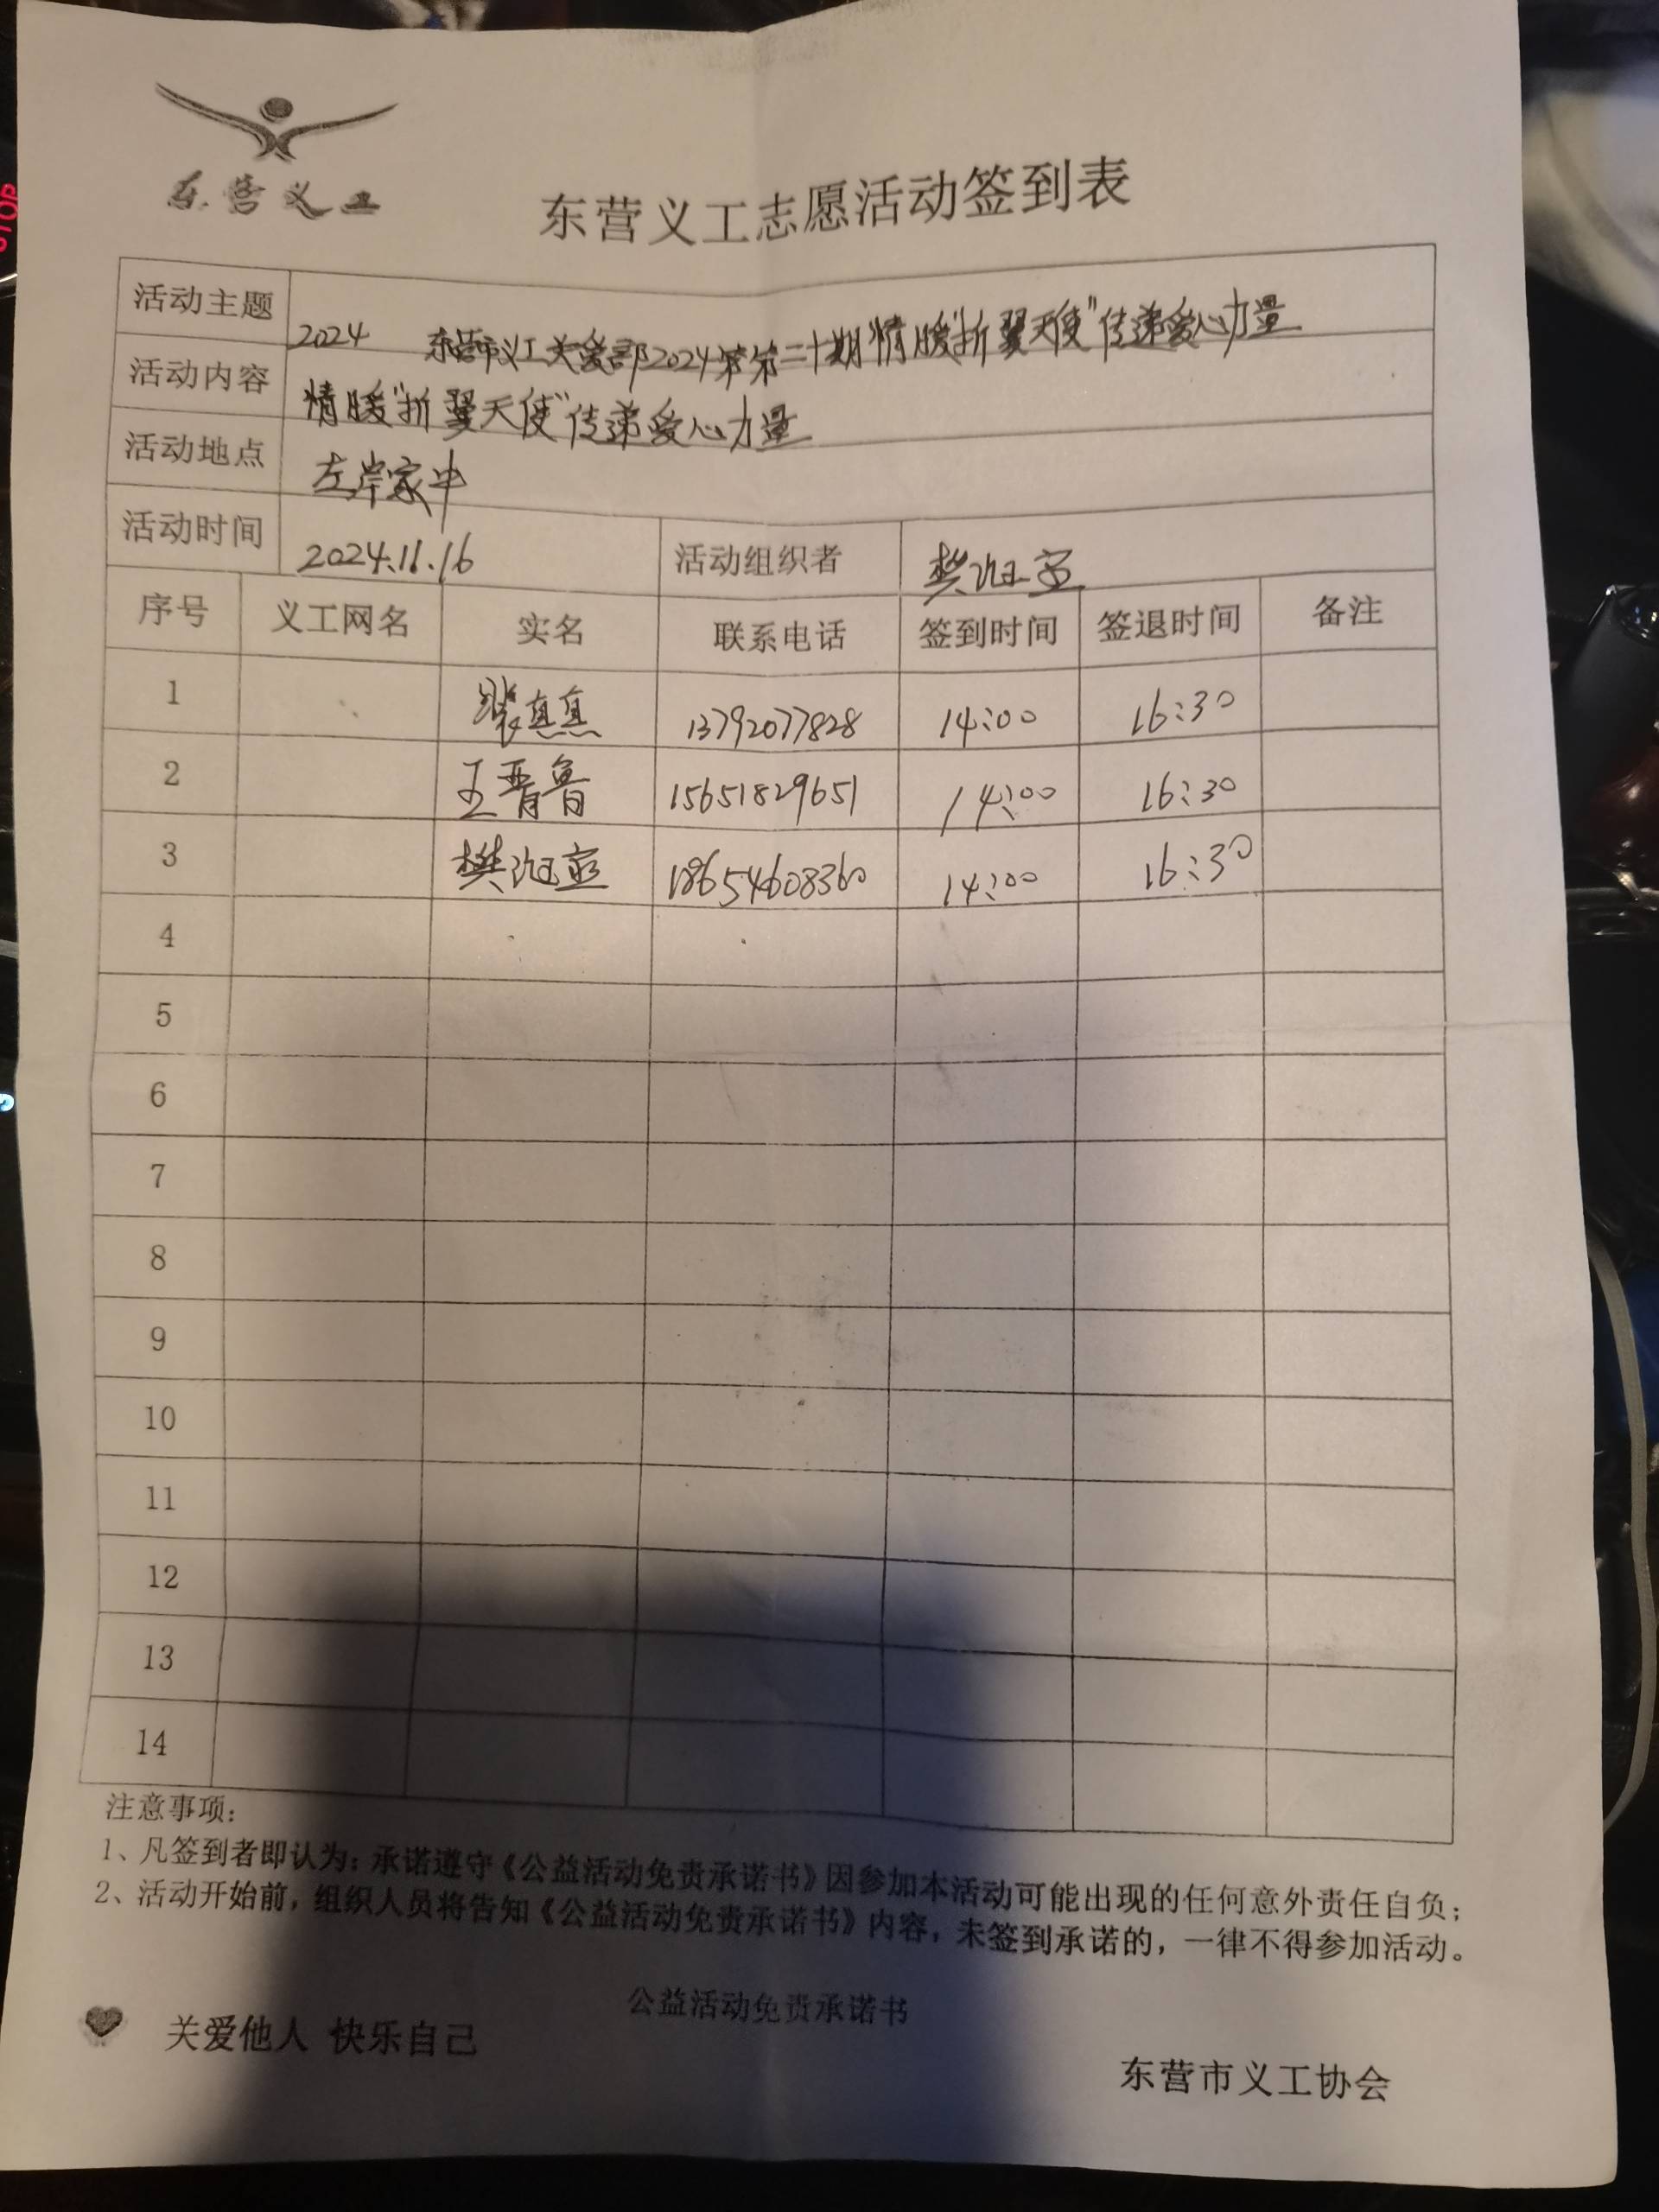 东营义工
东营义工志愿活动签到表
活动主题 2024 东营市义工关爱部2024第二十期"情暖"折翼天使"传递爱心力量
活动内容 情暖"折翼天使"传递爱心力量
活动地点 左岸家中
活动时间 2024.11.16 活动组织者 樊
序号 义工网名 实名 联系电话 签到时间 签退时间 备注
1 裴真真 13792077828 14:00 16:30
2 王晋鲁 15651829651 14:00 16:30
3 樊 18654608360 14:00 16:30
4
5
6
7
8
9
10
11
12
13
14
注意事项:
1、凡签到者即认为:承诺遵守《公益活动免责承诺书》因参加本活动可能出现的任何意外责任自负;
2、活动开始前,组织人员将告知《公益活动免责承诺书》内容,未签到承诺的,一律不得参加活动。
公益活动免责承诺书
关爱他人 快乐自己
东营市义工协会
STOP